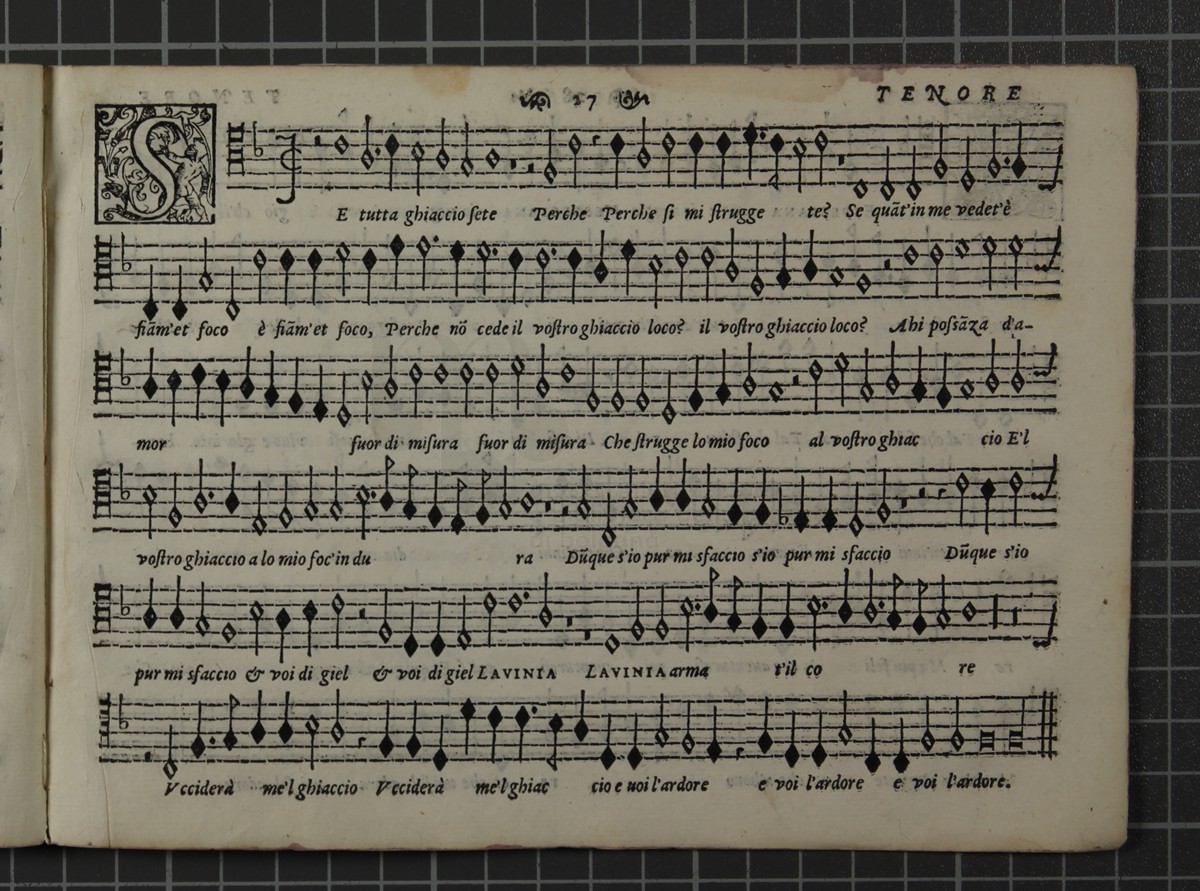 27 TENORE
SE tutta ghiaccio ſete Perche Perche ſi mi ſtrugge te? Se quãt'in me vedet'è
fiãm'et foco è fiãm'et foco, Perche nõ cede il voſtro ghiaccio loco? il voſtro ghiaccio loco? Ahi poſsãza d'a-
mor fuor di miſura fuor di miſura Che ſtrugge lo mio foco al voſtro ghiac cio E'l
voſtro ghiaccio a lo mio foc'in du ra Dũque s'io pur mi sfaccio s'io pur mi sfaccio Dũque s'io
pur mi sfaccio & voi di giel & voi di giel LAVINIA LAVINIA arma t'il co re
Vcciderà me'l ghiaccio Vcciderà me'l ghiac cio e uoi l'ardore e voi l'ardore e voi l'ardore.